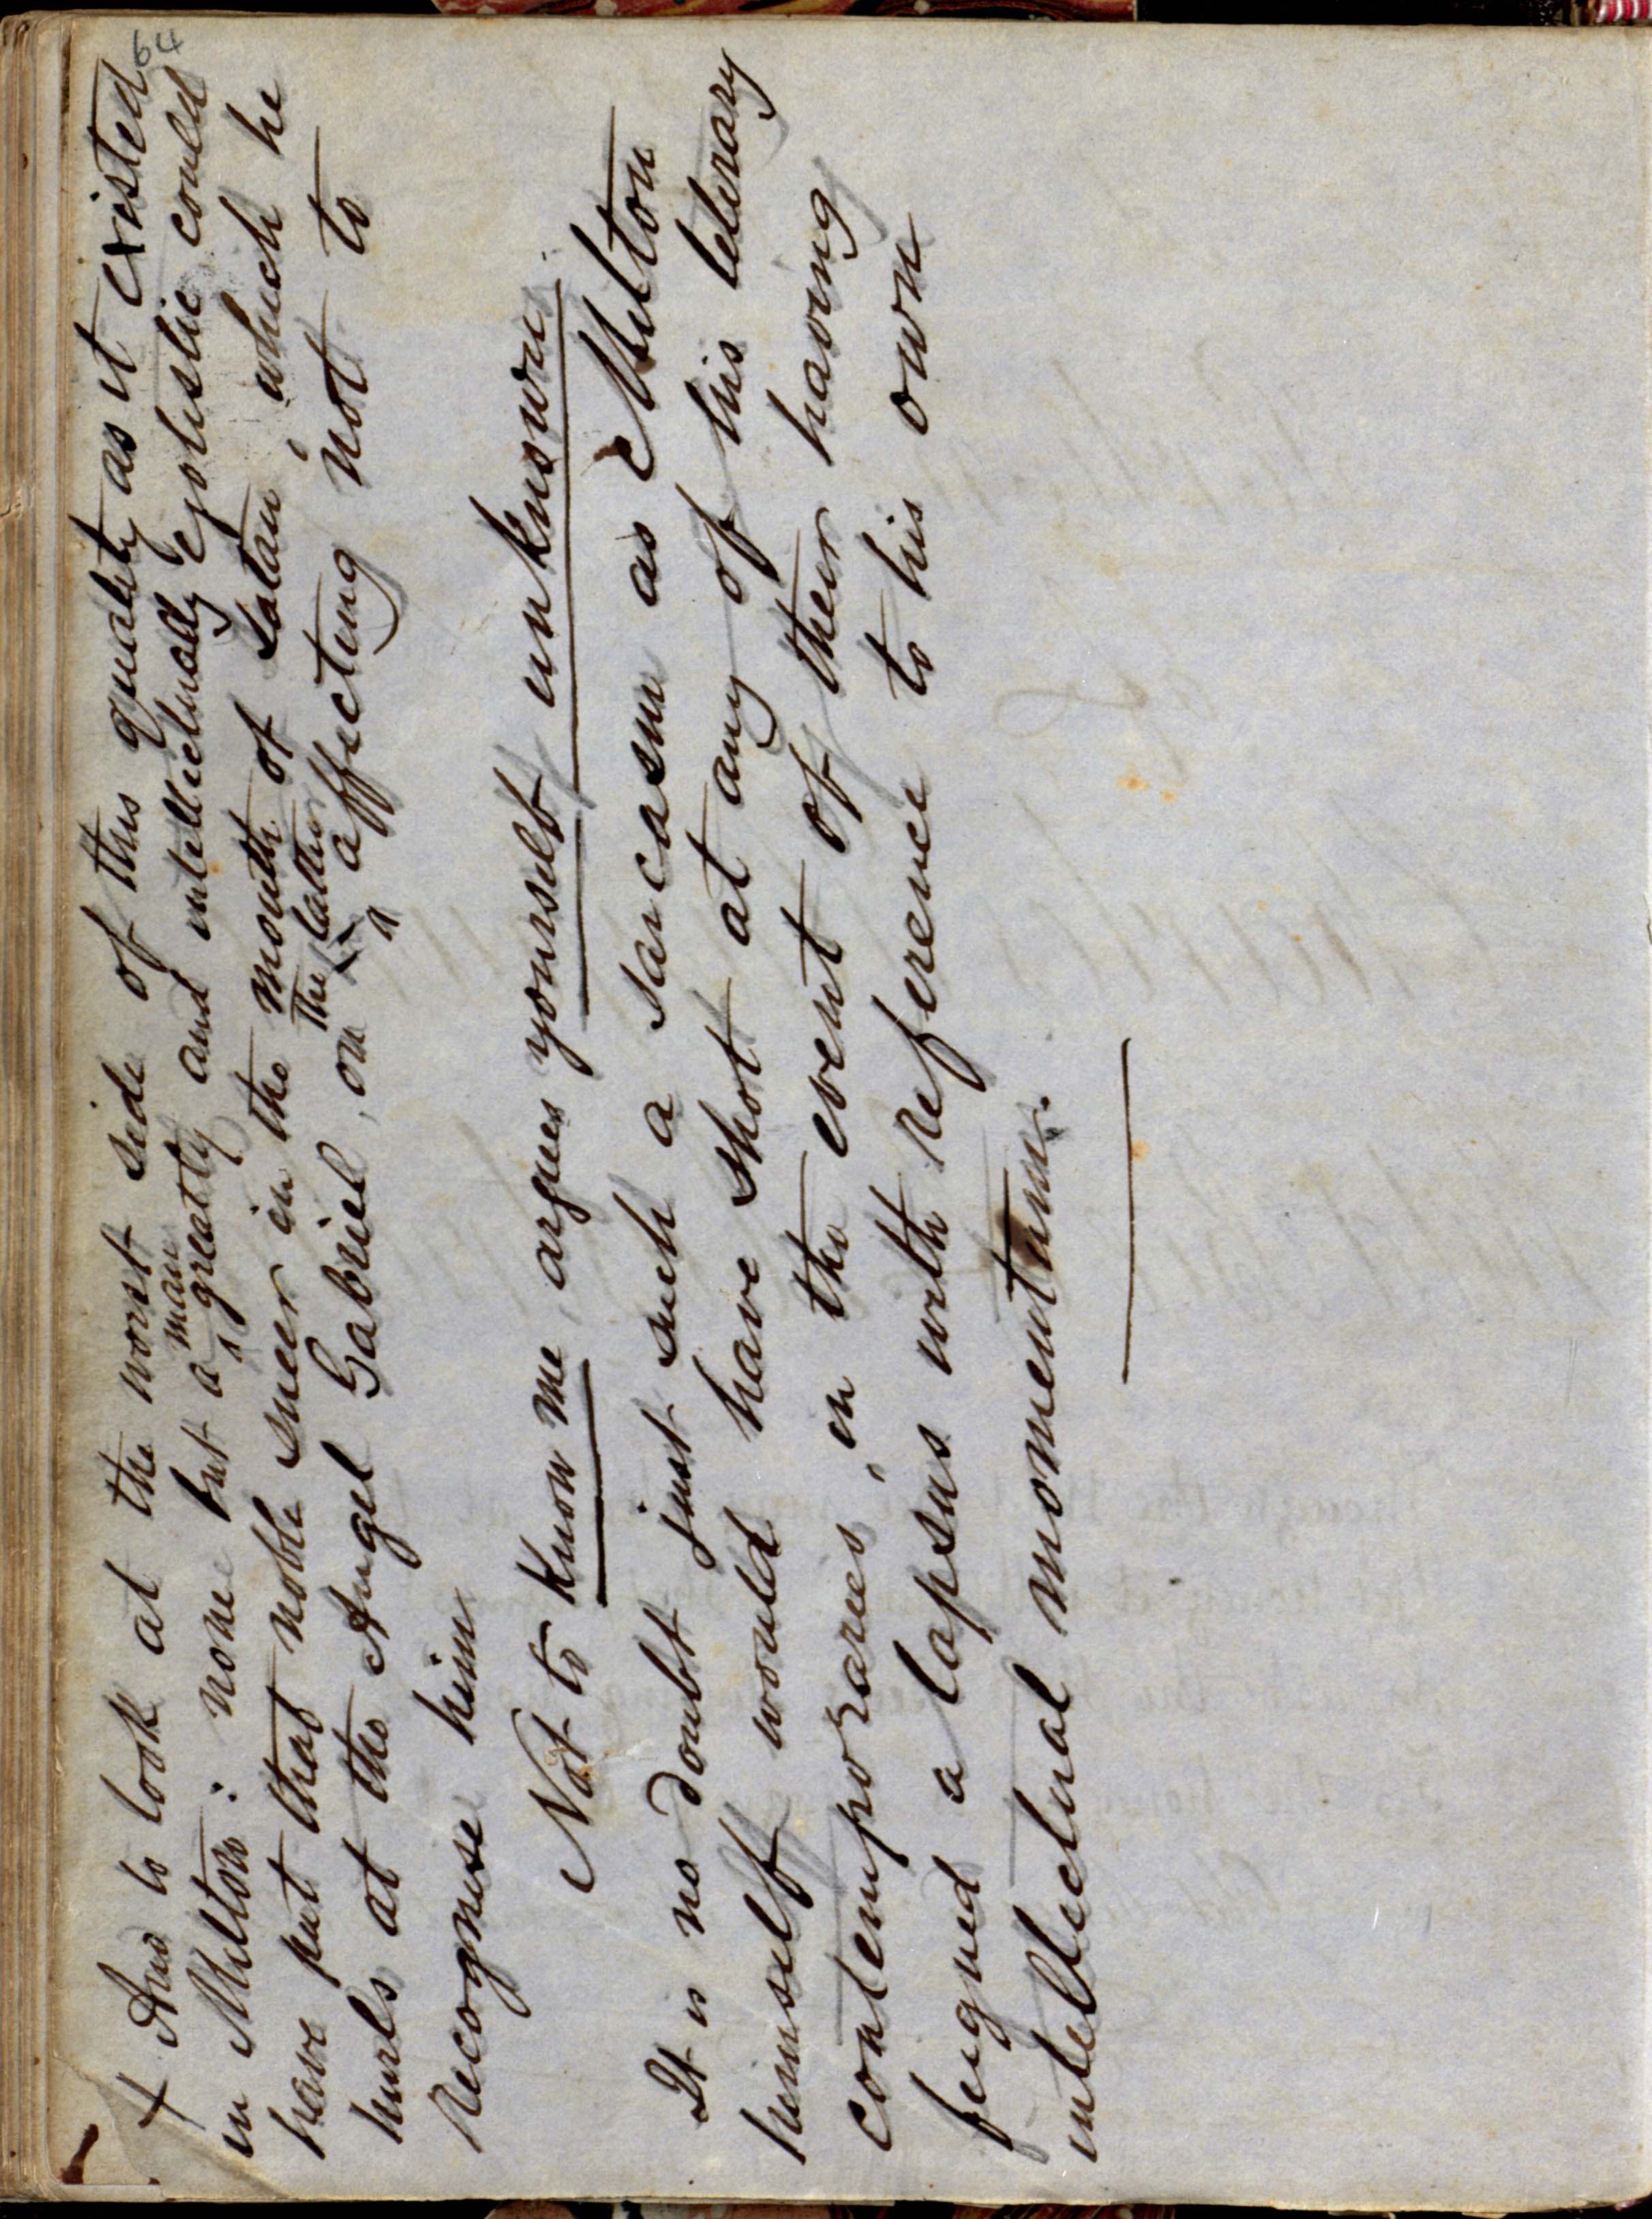 64
+ And to look at the worst side of this quality as it existed
in Milton: none but a man greatly and intellectually egotistic could
have put that noble sneer in the mouth of Satan, which he
hurls at the Angel Gabriel, on the latter affecting not to
recognise him
Not to know me, argues yourself unknown.
It is no doubt just such a sarcasm as Milton
himself would have shot at any of his literary
contemporaries, in the event of their having
feigned a lapsus with reference to his own
intellectual momentum.